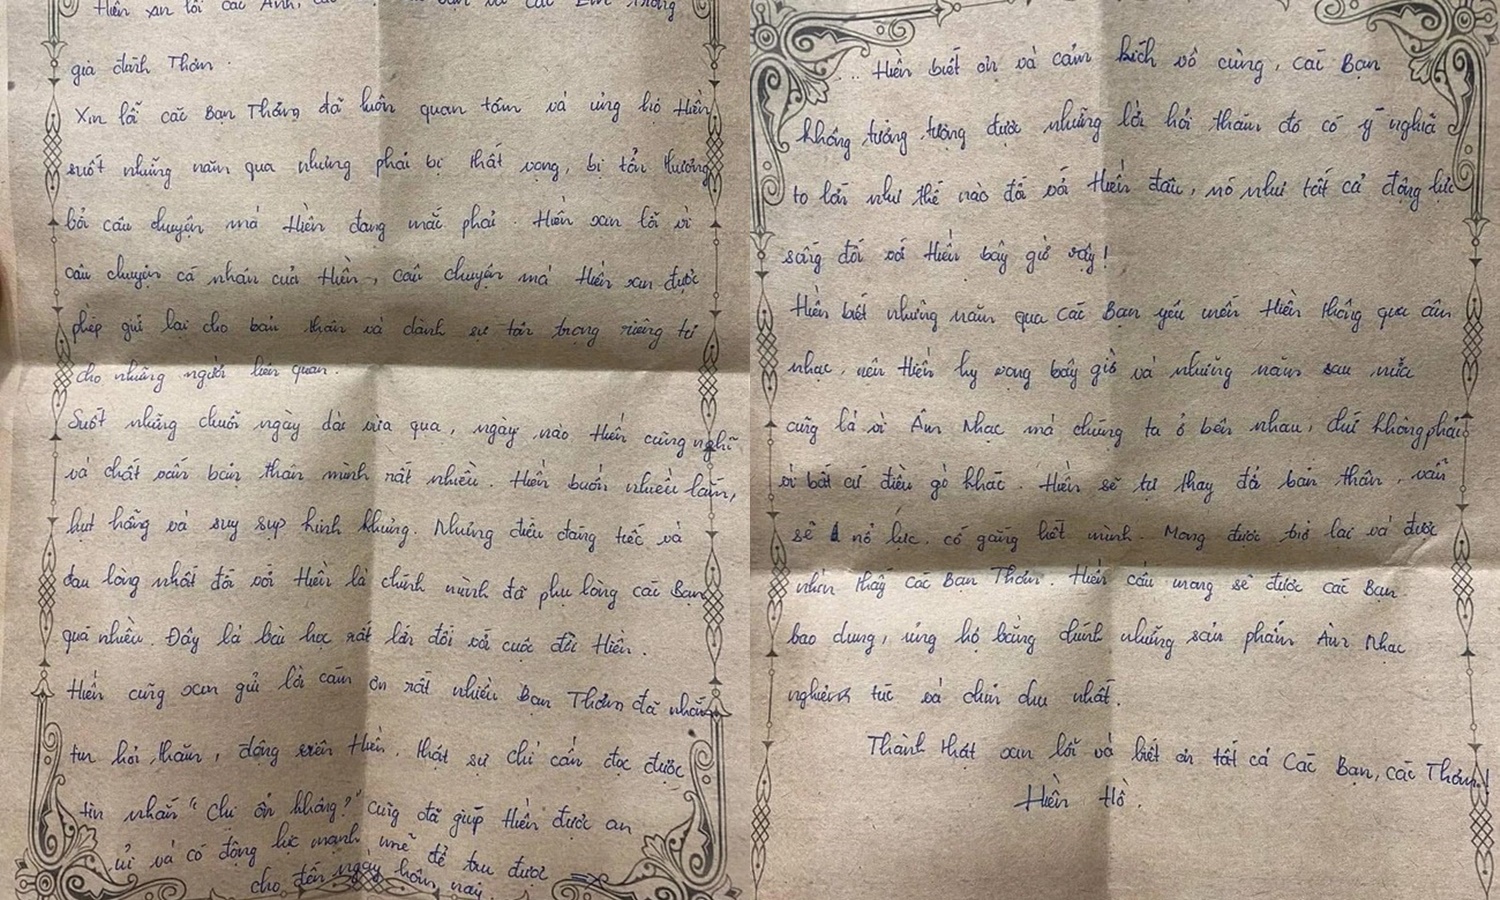 Hiền xin lỗi các Anh, các
gia đình Thơm.
Xin lỗi các Bạn Thơm đã luôn quan tâm và ủng hộ Hiền
suốt những năm qua nhưng phải bị thất vọng, bị tổn thương
bởi câu chuyện mà Hiền đang mắc phải. Hiền xin lỗi vì
câu chuyện cá nhân của Hiền, câu chuyện mà Hiền xin được
phép giữ lại cho bản thân và dành sự tôn trọng riêng tư
cho những người liên quan.
Suốt những chuỗi ngày dài vừa qua, ngày nào Hiền cũng nghĩ
và chất vấn bản thân mình rất nhiều. Hiền buồn nhiều lắm,
hụt hẫng và suy sụp kinh khủng. Những điều đáng tiếc và
đau lòng nhất đối với Hiền là chính mình đã phụ lòng các Bạn
quá nhiều. Đây là bài học rất lớn đối với cuộc đời Hiền.
Hiền cũng xin gửi lời cảm ơn rất nhiều Bạn Thơm đã nhắn
tin hỏi thăm, động viên Hiền. thật sự chỉ cần đọc được
tin nhắn "chị ổn không?" cũng đã giúp Hiền được an
ủi và có động lực mạnh mẽ để trụ được
cho đến ngày hôm nay
... Hiền biết ơn và cảm kích vô cùng, các Bạn
không tưởng tượng được những lời hỏi thăm đó có ý nghĩa
to lớn như thế nào đối với Hiền đâu, nó như tất cả động lực
sống đối với Hiền bây giờ vậy!
Hiền biết những năm qua các Bạn yêu mến Hiền thông qua âm
nhạc, nên Hiền hy vọng bây giờ và những năm sau nữa
cũng là vì Âm Nhạc mà chúng ta ở bên nhau, chứ không phải
vì bất cứ điều gì khác. Hiền sẽ tự thay đổi bản thân, vẫn
sẽ nổ lực, cố gắng hết mình. Mong được trở lại và được
nhìn thấy các Bạn Thơm. Hiền cầu mong sẽ được các Bạn
bao dung, ủng hộ bằng chính những sản phẩm Âm Nhạc
nghiêm túc và chỉn chu nhất.
Thành thật xin lỗi và biết ơn tất cả Các Bạn, các Thơm!
Hiền Hồ.